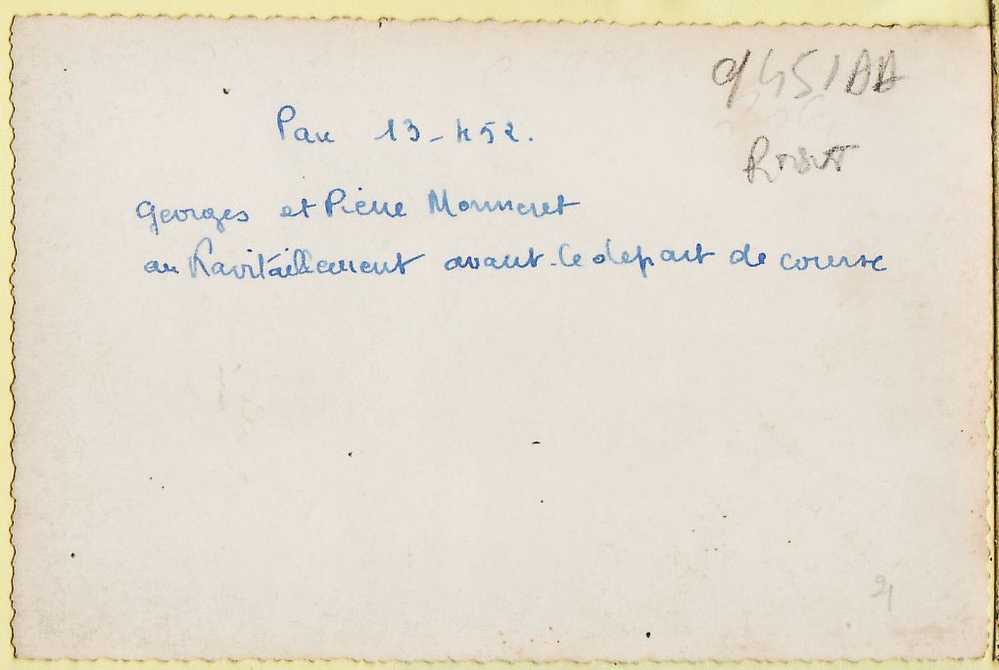 9/451AA
Pau 13-4 52.
Georges et Pierre Monneret
au Ravitaillement avant le depart de course